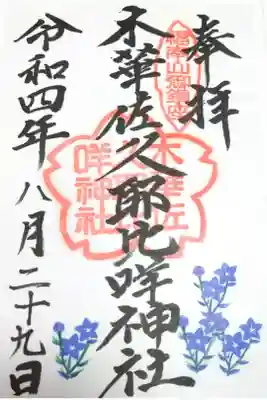 奉拝
木華佐久耶比咩神社
木華佐
咩神社
令和四年八月二十九日